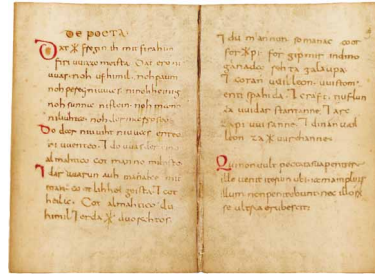 De poeta
Dat *fregin ih mit firahim
firi uuizzo meista. Dat ero ni
uuas. noh ufhimil. noh paum
noh pereg ni uuas. ninohheinig
noh sunna nistein. noh mano
niliuhta. noh der mareo seo.
Do dar niuuiht niuuas enteo
ni uuenteo. ⁊ do uuas der eino
almahtico cot manno miltisto.
⁊ dar uuarun auh manake mit
inan. cootlihhe geista. ⁊ cot
heilac. Cot almahtico. du
himil ⁊ erda *uuorahtos.
⁊ du mannun so manac coot
for*pi. for gip mir indino
ganada rehta galaupa.
⁊ cotan uuilleon. uuistom.
enti spahida. ⁊ craft. tiuflun
za uuidar stantanne. ⁊ arc
zapi uuisanne. ⁊ dinan uuil
leon za *uurchanne.
Qui non uult peccata sua penitere
ille uenit iterum ubi iam amplius
illum non penitebunt nec illorum
se ultra erubescit.